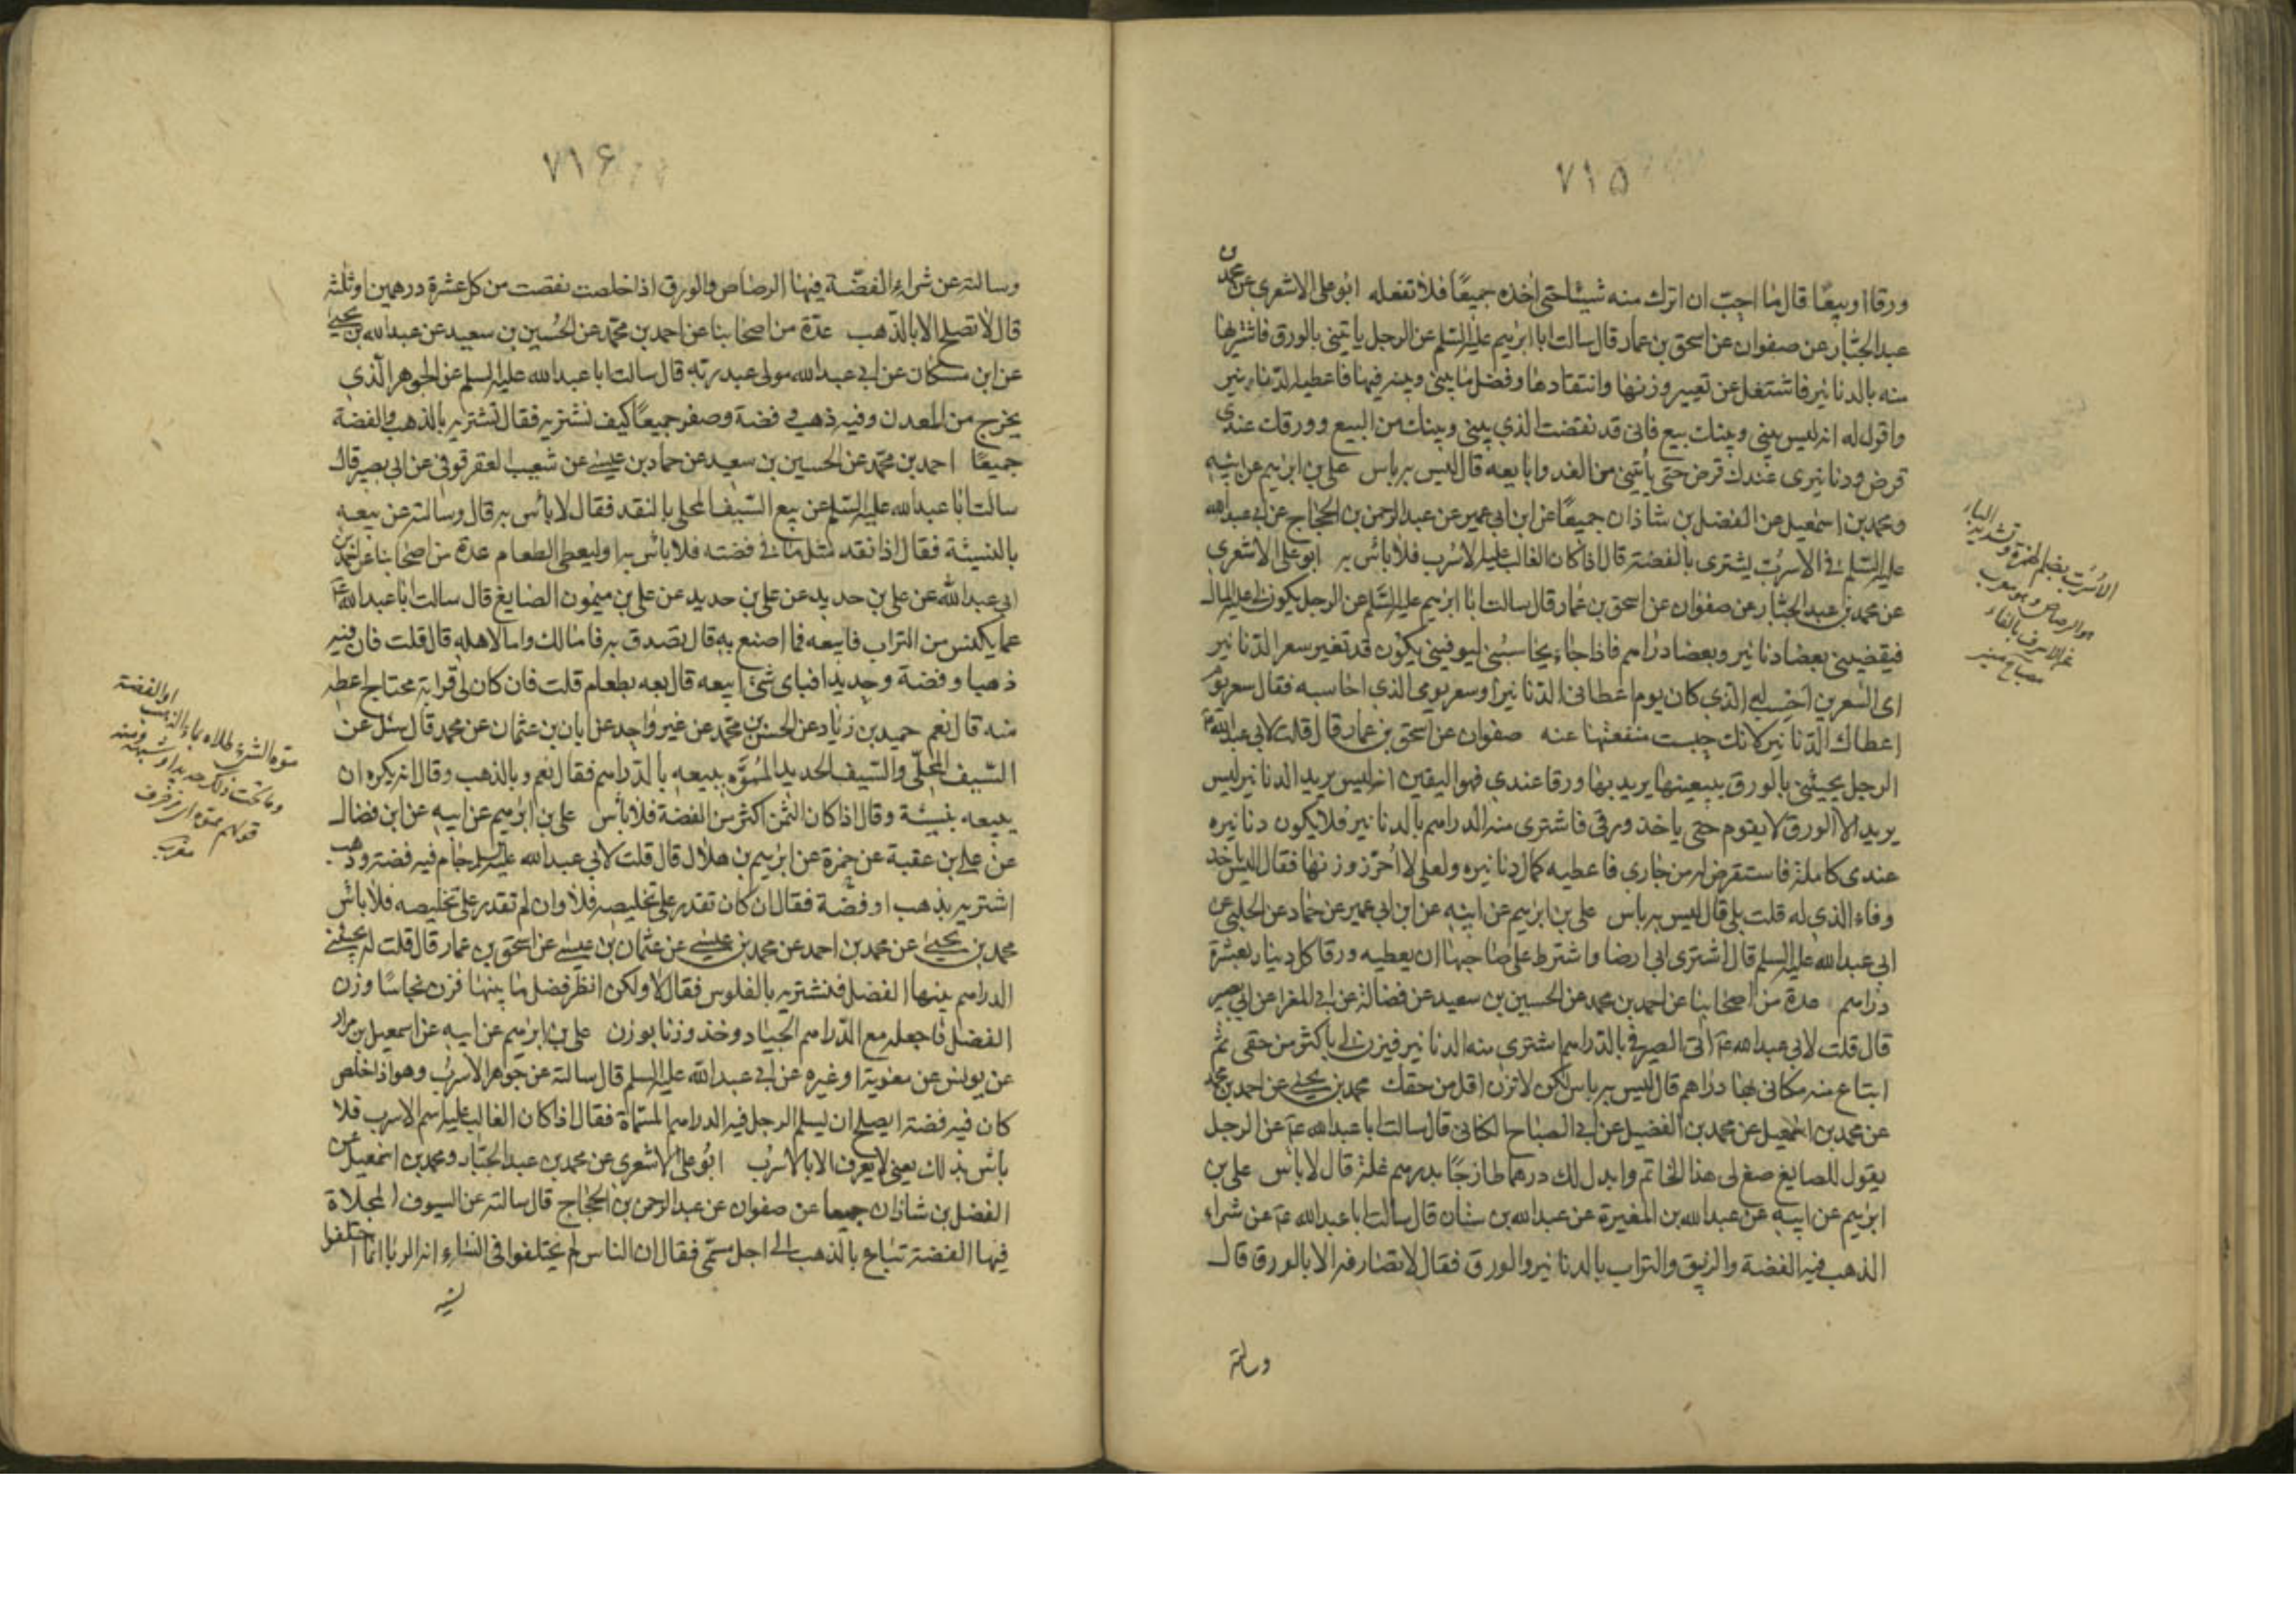 ٧١۵
ورقا او بيعًا قال ما احبّ ان اترك منه شيئا حتى اخذه جميعًا فلا تفعله ابو على الاشعرى عن محمد بن
عبد الجبّار عن صفوان عن اسحق بن عمار قال سالت ابا ابرهيم عليه السّلم عن الرجل ياتينى بالورق فاشتريها
منه بالدنانير فاشتغل عن تعيير وزنها وانتقادها وفضل ما بينى وبينه فيها فاعطيه الدنانير
واقول له انه ليس بينى وبينك بيع فانى قد نقضت الذي بينى وبينك من البيع وورقك عندى
قرض ودنانيرى عندك قرض حتى يأتينى من الغد وابايعه قال ليس به باس على بن ابرهيم عن ابيه
ومحمد بن اسمعيل عن الفضل بن شاذان جميعًا عن ابن ابى عمير عن عبد الرحمن بن الحجّاج عن ابى عبد الله
عليه السّلم فى الاسرب يشترى بالفضة قال اذا كان الغالب عليه الاسرب فلا باس به ابو على الاشعرى
عن محمد بن عبد الجبّار عن صفوان عن اسحق بن عمار قال سالت ابا ابرهيم عليه السّلم عن الرجل يكون لى عليه المال
فيقضينى بعضا دنانير وبعضا دراهم فاذا جاء يحاسبنى ليوفينى يكون قد تغير سعر الدنانير
اى السّعرين احسب له الذي كان يوم اعطانى الدنانير او سعر يومى الذي احاسبه فقال سعر يوم
اعطاك الدنانير لانك حبست منفعتها عنه صفوان عن اسحق بن عمار قال قلت لابى عبد الله ع
الرجل يجيئنى بالورق يبيعنيها يريد بها ورقا عندي فهو اليقين انه ليس يريد الدنانير ليس
يريد الا الورق لا يقوم حتى ياخذ ورقى فاشترى منه الدراهم بالدنانير فلا يكون دنانيره
عندى كاملة فاستقرض له من جارى فاعطيه كمال دنانيره ولعلى لا احرز وزنها فقال اليس ياخذ
وفاء الذي له قلت بلى قال ليس به باس على بن ابرهيم عن ابيه عن ابن ابى عمير عن حماد عن الحلبى عن
ابى عبد الله عليه السلم قال اشترى ابى ارضا واشترط على صاحبها ان يعطيه ورقا كل دينار بعشرة
دراهم عدة من اصحابنا عن احمد بن محمد عن الحسين بن سعيد عن فضالة عن ابى المغرا عن ابى بصير
قال قلت لابى عبد الله ع اتى الصيرفى بالدراهم اشترى منه الدنانير فيزن لى باكثر من حقى ثم
ابتاع منه مكانى بها دراهم قال ليس به باس لكن لا تزن اقل من حقك محمد بن يحيى عن احمد بن محمد
عن محمد بن اسمعيل عن محمد بن الفضيل عن ابى الصباح الكنانى قال سالت ابا عبد الله ع عن الرجل
يقول للصايغ صغ لى هذا الخاتم وابدل لك درهما طازجًا بدرهم غلة قال لا باس على بن
ابرهيم عن ابيه عن عبد الله بن المغيرة عن عبد الله بن سنان قال سالت ابا عبد الله ع عن شراء
الذهب فيه الفضة والزيبق والتراب بالدنانير والورق فقال لا تصارفه الا بالورق قال
وسالته
الاسرب بضم الهمزة وتشديد الباء
هو الرصاص وهو معرب
عن الاسرف بالفاء
مصباح منير
٧١۶
وسالته عن شراء الفضّة فيها الرصاص والورق اذا خلصت نقصت من كل عشرة درهمين او ثلثة
قال لا تصلح الا بالذهب عدّة من اصحابنا عن احمد بن محمّد عن الحُسين بن سعيد عن عبد الله بن يحيى
عن ابن مسكان عن ابى عبد الله مولى عبد ربه قال سالت ابا عبد الله عليه السلم عن الجوهر الذي
يخرج من المعدن وفيه ذهب وفضة وصفر جميعًا كيف نشتريه فقال تشتريه بالذهب والفضة
جميعًا احمد بن محمّد عن الحسين بن سعيد عن حماد بن عيسى عن شعيب العقرقوفى عن ابى بصير قال
سالت ابا عبد الله عليه السّلم عن بيع السّيف المحلى بالنقد فقال لا باس به قال وسالته عن بيعه
بالنسيئة فقال اذا نقد مثل ما فى فضته فلا باس به او ليعطى الطعام عدة من اصحابنا عن احمد بن
ابى عبد الله عن على بن حديد عن على بن حديد عن على بن ميمون الصايغ قال سالت ابا عبد الله ع
عما يكنس من التراب فابيعه فما اصنع به قال تصدق به فاما لك واما لاهله قال قلت فان فيه
ذهبا وفضة وحديدا فباى شئ ابيعه قال بعه بطعام قلت فان كان لى قرابة محتاج اعطه
منه قال نعم حميد بن زياد عن الحسن بن محمّد عن غير واحد عن ابان بن عثمان عن محمد قال سئل عن
السّيف المحلّى والسّيف الحديد المموّه يبيعه بالدراهم فقال نعم وبالذهب وقال انه يكره ان
يبيعه بنسيئة وقال اذا كان الثمن اكثر من الفضة فلا باس على بن ابرهيم عن ابيه عن ابن فضال
عن على بن عقبة عن حمزة عن ابرهيم بن هلال قال قلت لابى عبد الله عليه السلم جام فيه فضة وذهب
اشتريه بذهب او فضّة فقال ان كان تقدر على تخليصه فلا وان لم تقدر على تخليصه فلا باس
محمد بن يحيى عن محمد بن احمد عن محمد بن عيسى عن عثمان بن عيسى عن اسحق بن عمار قال قلت له تجيئنى
الدراهم بينها الفضل فنشتريه بالفلوس فقال لا ولكن انظر فضل ما بينها فزن نحاسًا وزن
الفضل فاجعله مع الدّراهم الجياد وخذ وزنا بوزن على بن ابرهيم عن ابيه عن اسمعيل بن مرار
عن يونس عن معوية او غيره عن ابى عبد الله عليه السلم قال سالته عن جوهر الاسرب وهو اذا خلص
كان فيه فضة ايصلح ان يسلم الرجل فيه الدراهم المسمّاة فقال اذا كان الغالب عليه اسم الاسرب فلا
باس بذلك يعنى لا يعرف الا بالاسرب ابو على الاشعرى عن محمد بن عبد الجبّار ومحمد بن اسمعيل عن
الفضل بن شاذان جميعا عن صفوان عن عبد الرحمن بن الحجّاج قال سالته عن السيوف المحلاة
فيها الفضة تباع بالذهب الى اجل مسمّى فقال ان الناس لم يختلفوا فى النساء انه الربا انما اختلفوا
موّه الشئ طلاه بماء الذهب او الفضة
وما تحت ذلك حديد او شبه ومنه
قولهم مموه اى مزخرف
مغرب